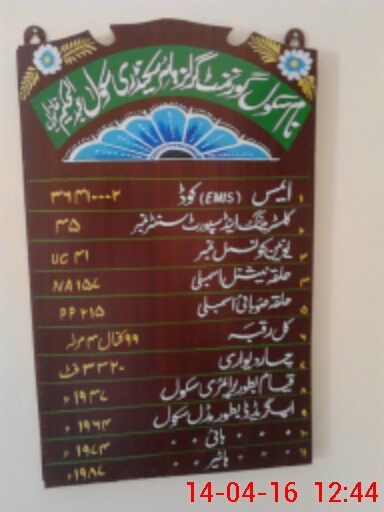 نام سکول گورنمنٹ گرلز ہائر سیکنڈری سکول
۱ ایمس (EMIS) کوڈ ۳۶۴۱۰۰۰۲
۲ کلسٹر ٹریننگ اینڈ سپورٹ سنٹر نمبر ۳۵
۳ یونین کونسل نمبر UC ۴۱
۴ حلقہ نیشنل اسمبلی NA ۱۵۷
۵ حلقہ صوبائی اسمبلی PP ۲۱۵
۶ کل رقبہ ۹۹ کنال ۳ مرلہ
۷ چار دیواری ۳۳۲۰ فٹ
۸ قیام بطور پرائمری سکول ۱۹۳۷ء
۹ اپ گریڈیڈ بطور مڈل سکول ۱۹۶۴ء
۱۰ " " " ہائی " " ۱۹۷۴ء
۱۱ " " " ہائیر " " ۱۹۸۷ء
14-04-16 12:44